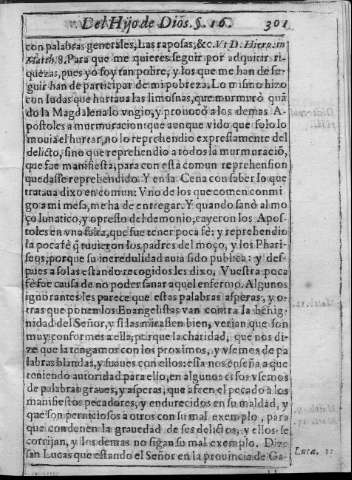 Del Hijo de Dios. §. 16. 301
con palabras generales, Las raposas, &c. Vt D. Hiero. in
Matth. 8. Para que me quieres seguir por adquirir ri-
quezas, pues yo soy tan pobre, y los que me han de se-
guir han de participar de mi pobreza. Lo mismo hizo
con Iudas que hurtaua las limosnas, que murmurò quã
do la Magdalena lo vngio, y prouocò a los demas A-
postoles a murmuracion: que aunque vido que solo lo
mouia el hurtar, no lo reprehendio expressamente del
delicto, sino que reprehendio a todos la murmuraciõ,
que fue manifiesta, para con esta comun reprehension
quedasse reprehendido. Y en la Cena con saber lo que
trataua dixo en comun: Vno de los que comen conmi
go a mi mesa, me ha de entregar. Y quando sanò al mo
ço lunatico, y opresso del demonio, cayeron los Apos-
toles en vna falta, que fue tener poca fè; y reprehendio
la poca fè q̃ tuuieron los padres del moço, y los Phari-
seos; porque su incredulidad auia sido publica: y des-
pues a solas estando recogidos les dixo, Vuestra poca
fè fue causa de no poder sanar aquel enfermo. Algunos
ignorantes les parece que estas palabras asperas, y o-
tras que ponen los Euangelistas van contra la benig-
nidad del Señor, y si las mirassen bien, verian que son
muy conformes a ella, porque la charidad, que nos di-
ze que la tengamos con los proximos, y vsemos de pa
labras blandas, y suaues con ellos: essa nos enseña a que
teniendo autoridad para ello, en algunos casos vsemos
de palabras graues, y asperas, que afeen el pecado a los
manifiestos pecadores, y endurecidos en su maldad, y
que son perniciosos a otros con su mal exemplo, para
que condenen la grauedad de sus delictos, y ellos se
corrijan, y los demas no sigan su mal exemplo. Dize
san Lucas que estando el Señor en la prouincia de Ga- Luca. 13